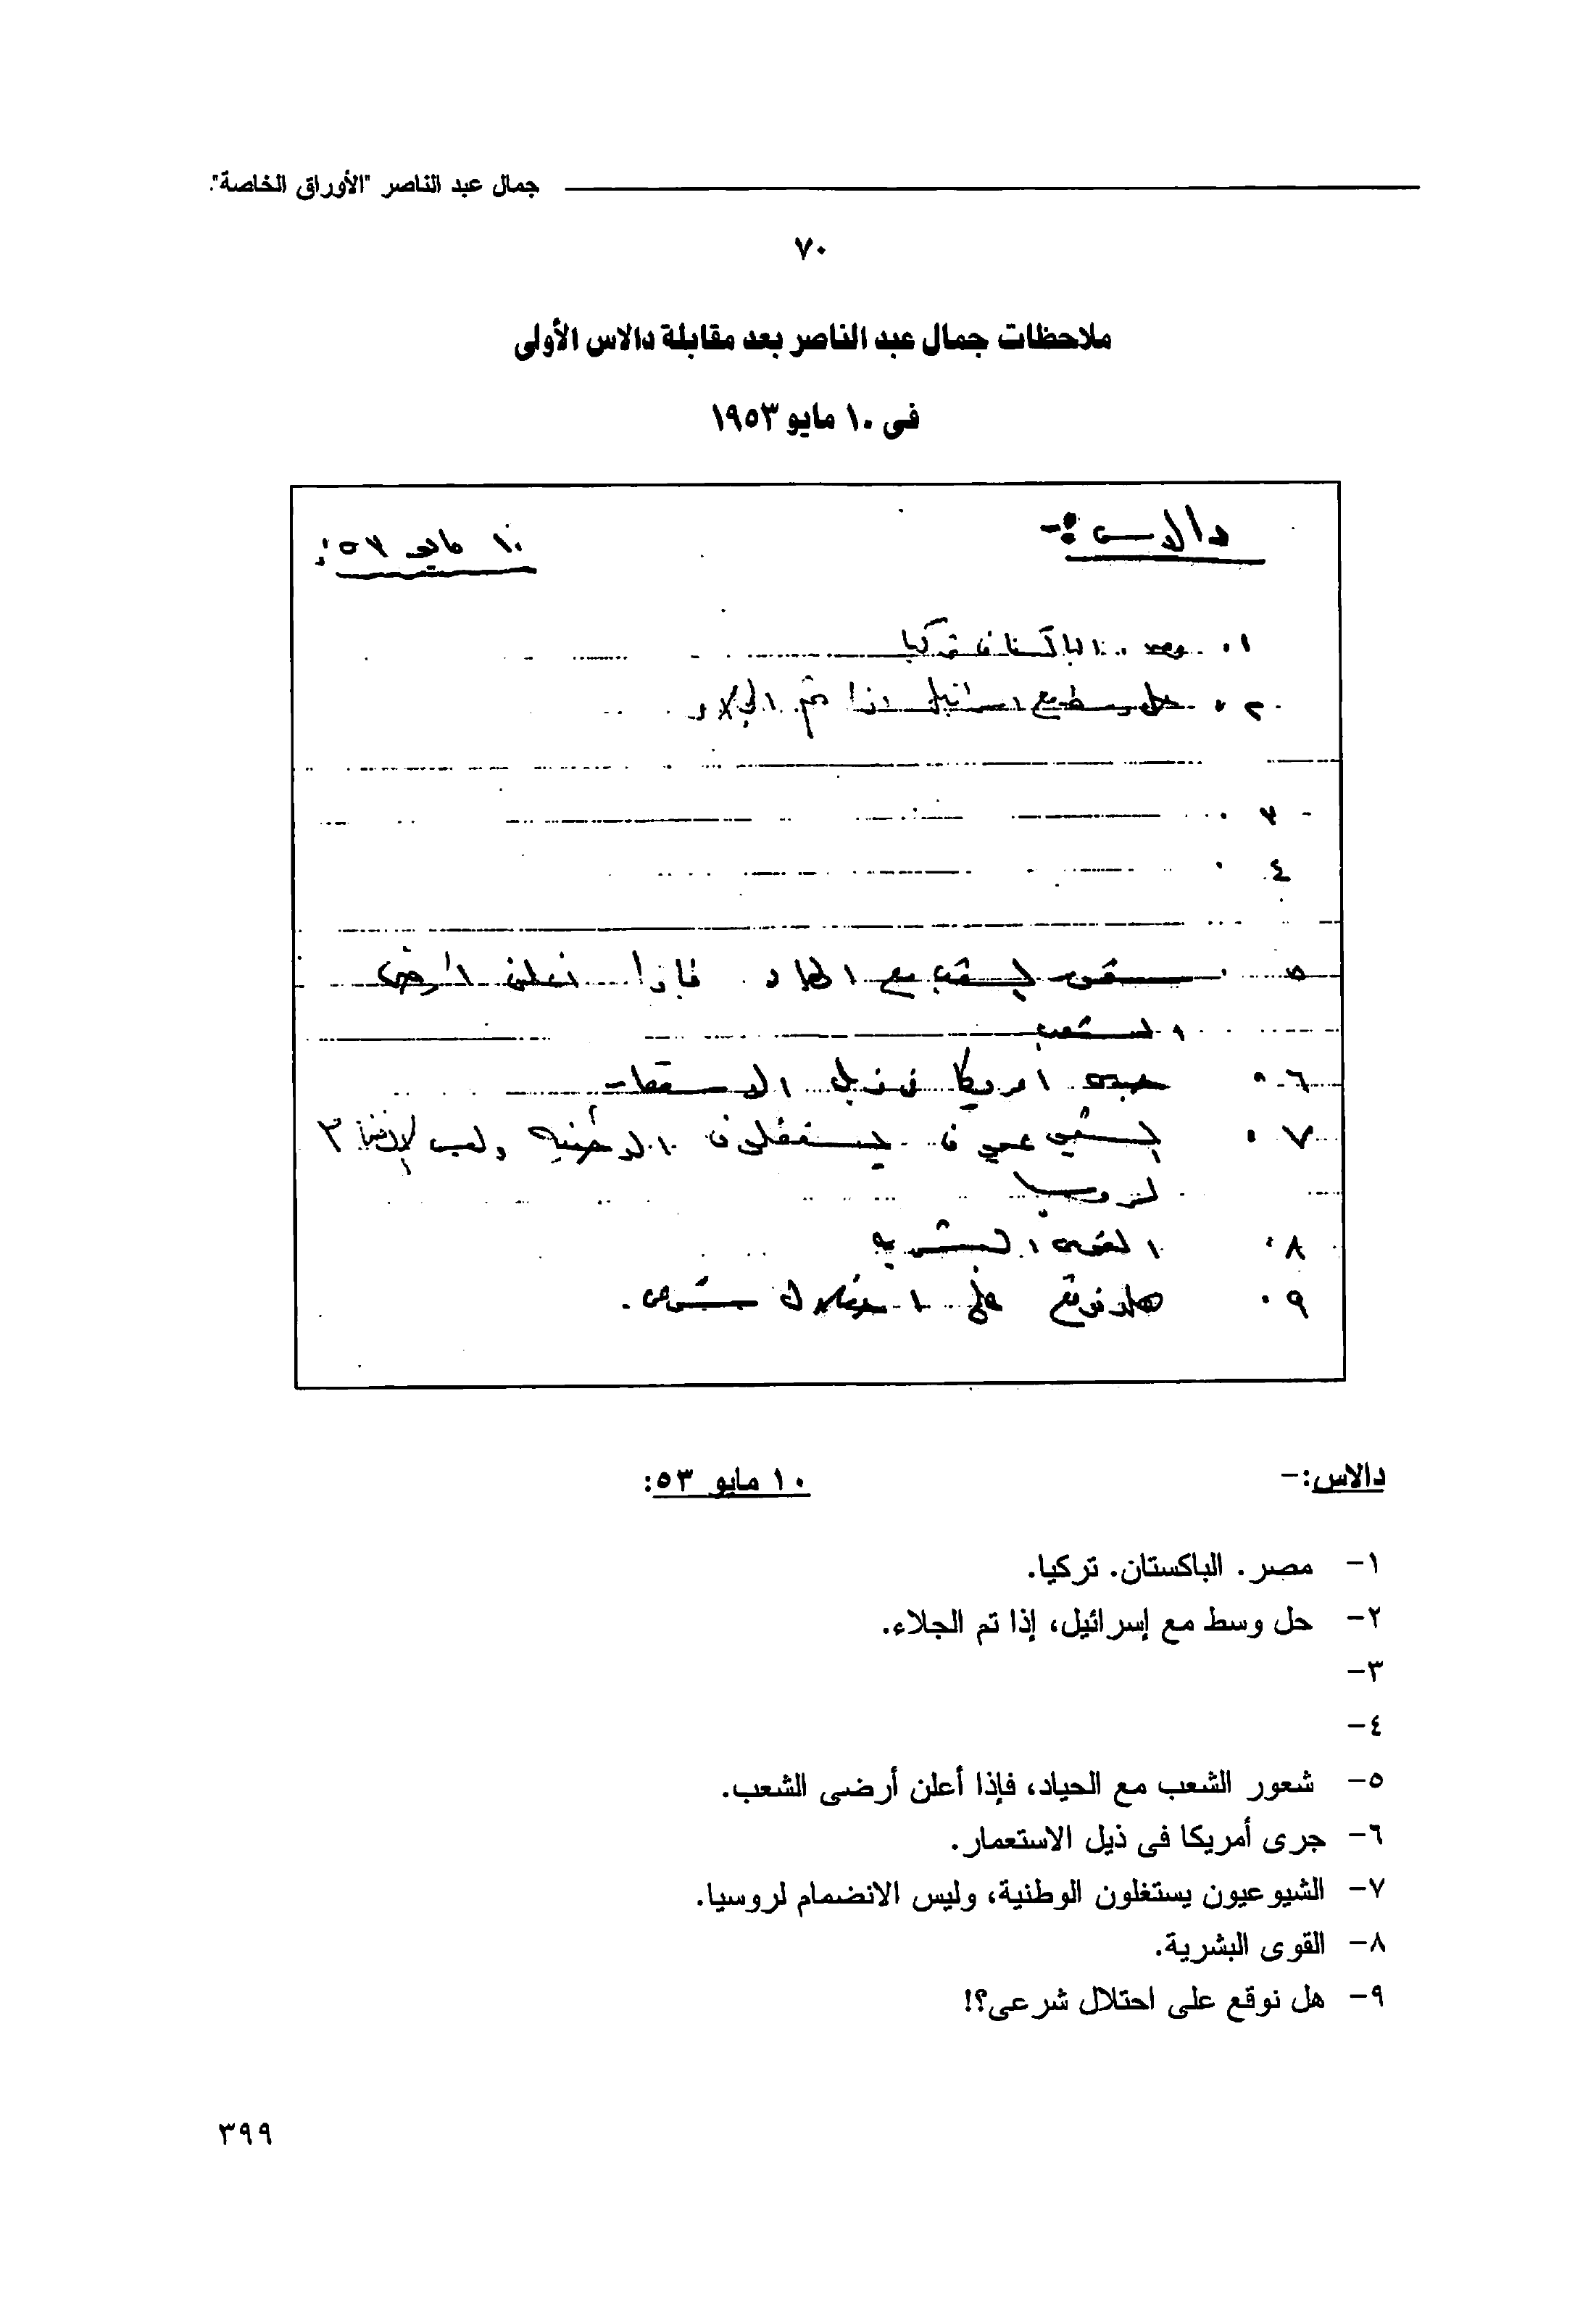 جمال عبد الناصر "الأوراق الخاصة".
٧٠
ملاحظات جمال عبد الناصر بعد مقابلة دالاس الأولى
فى ١٠ مايو ١٩٥٣
دالاس :-
١٠ مايو ٥٣ :
١. مصر . الباكستان . تركيا
٢. حل وسط مع اسرائيل اذا تم الجلاء
٣.
٤.
٥. شعور الشعب مع الحياد فإذا أعلن أرضى
الشعب
٦. جرى امريكا فى ذيل الاستعمار
٧. الشيوعيون يستغلون الوطنية وليس الانضمام
لروسيا
٨. القوى البشرية
٩. هل نوقع على احتلال شرعى .
دالاس:-
١٠ مايو ٥٣:
١- مصر. الباكستان. تركيا.
٢- حل وسط مع إسرائيل، إذا تم الجلاء.
٣-
٤-
٥- شعور الشعب مع الحياد، فإذا أعلن أرضى الشعب.
٦- جرى أمريكا فى ذيل الاستعمار.
٧- الشيوعيون يستغلون الوطنية، وليس الانضمام لروسيا.
٨- القوى البشرية.
٩- هل نوقع على احتلال شرعى؟!
٣٩٩